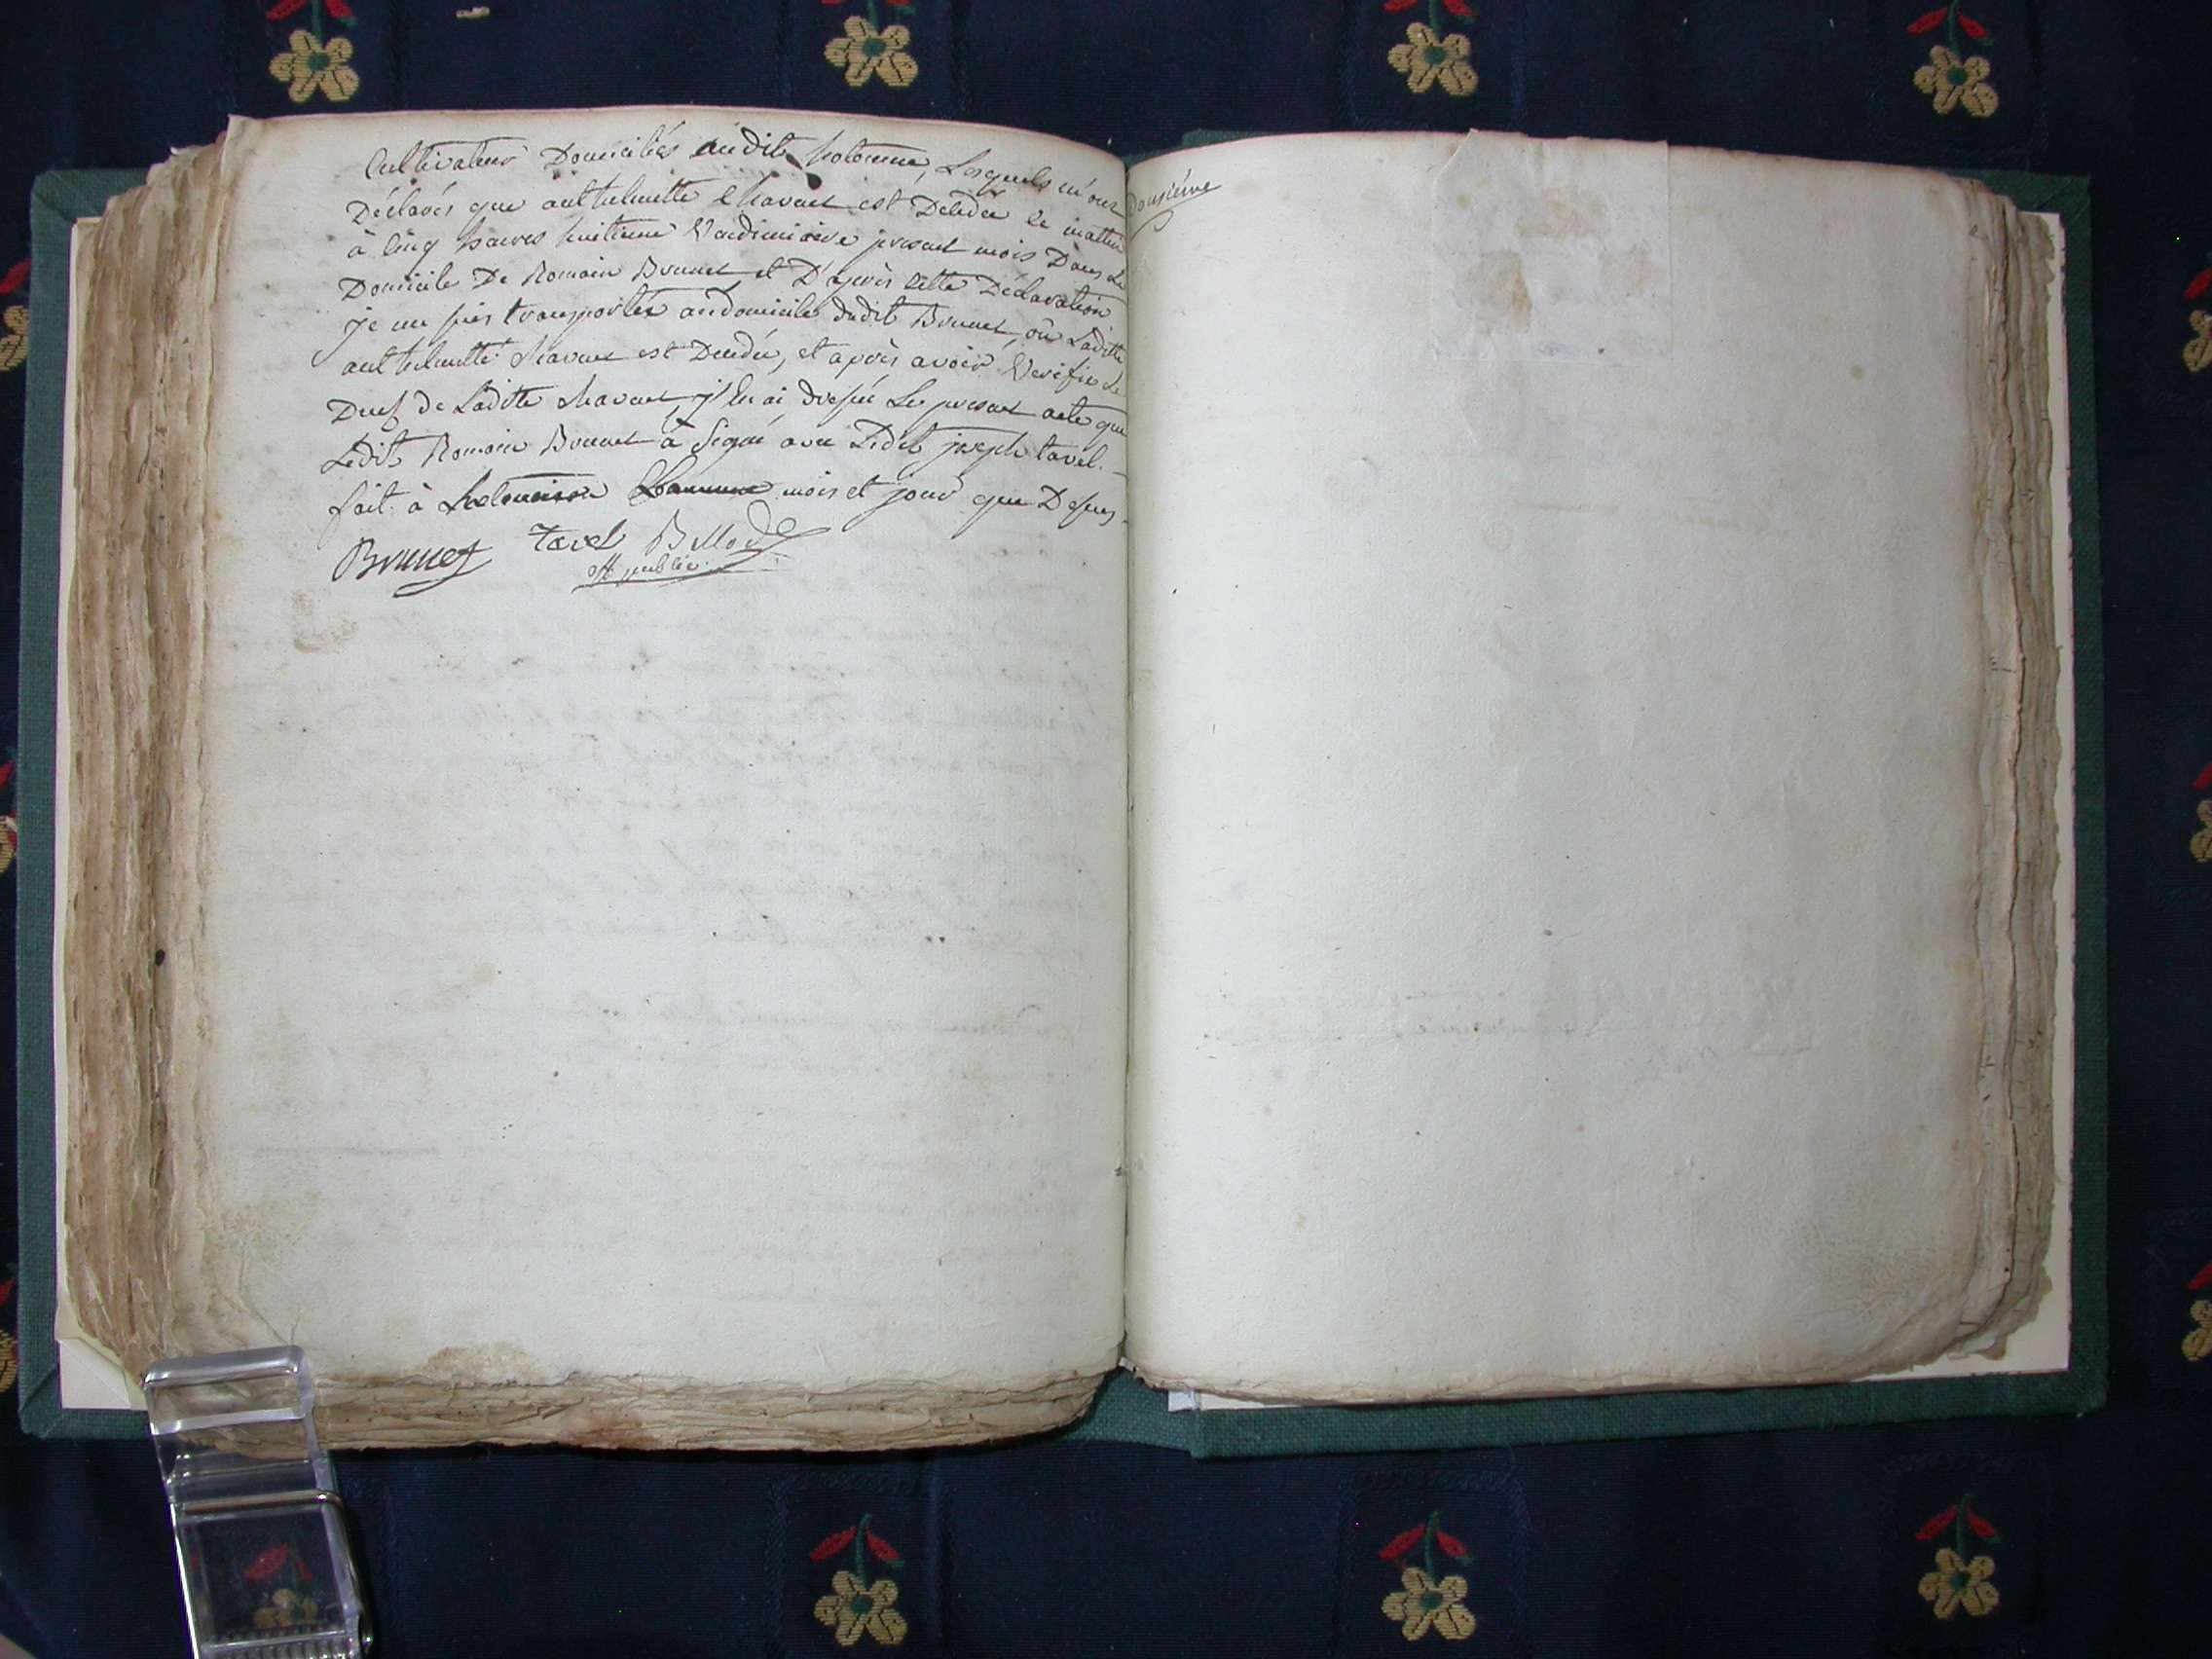 Cultivateur Domiciliés audit holonne, Lesquels m'ont
Déclarés que anthelmette Chavant est Décédée ce mattin
à cinq heures huitieme Vendimiaire present mois Dans Le
Domicile De Romain Brunet et D'après cette Déclaration
je me suis transportéz au domicile dudit Brunet, où Laditte
anthelmette Chavant est Decedée, et après avoir Verifie Le
Decest de Laditte chavant j'en ai dressée Le present acte que
Ledit Romain Brunet à Signé avec Ledit joseph tavel.
fait à mois et jour que Dessus.
Brunet tavel Billod
off public.
Dousiéme